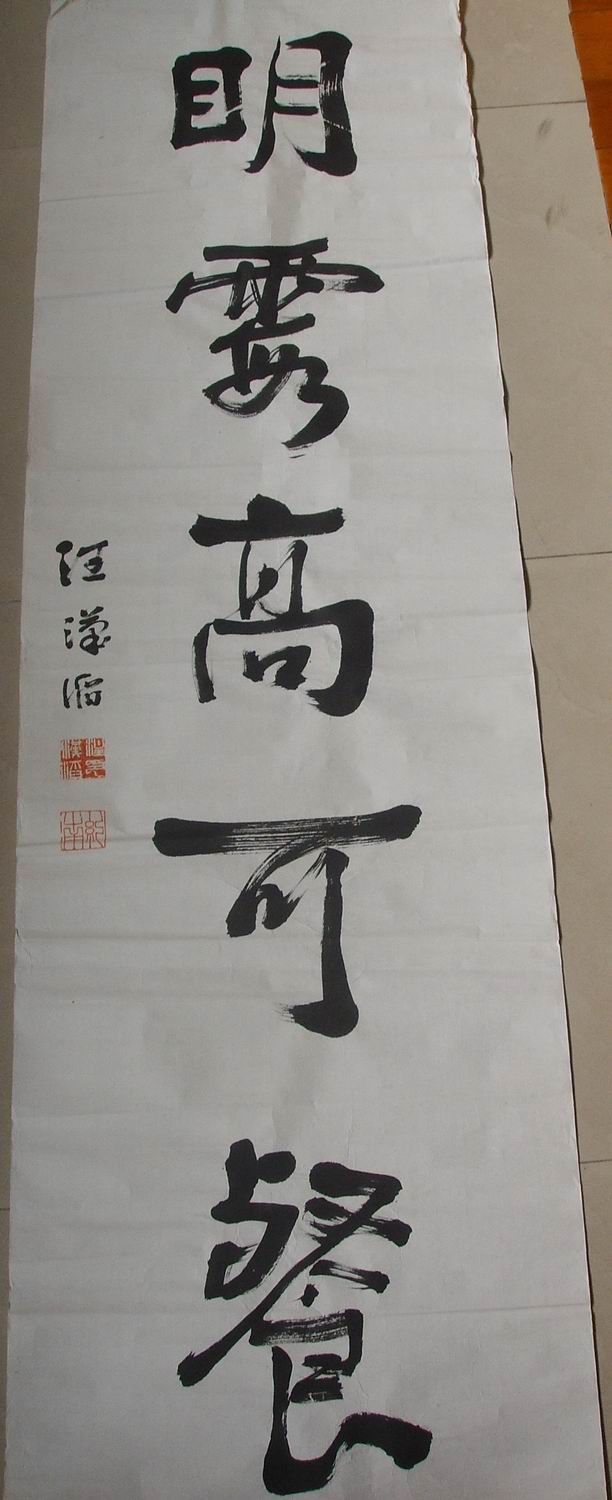 明霞高可餐
汪漢